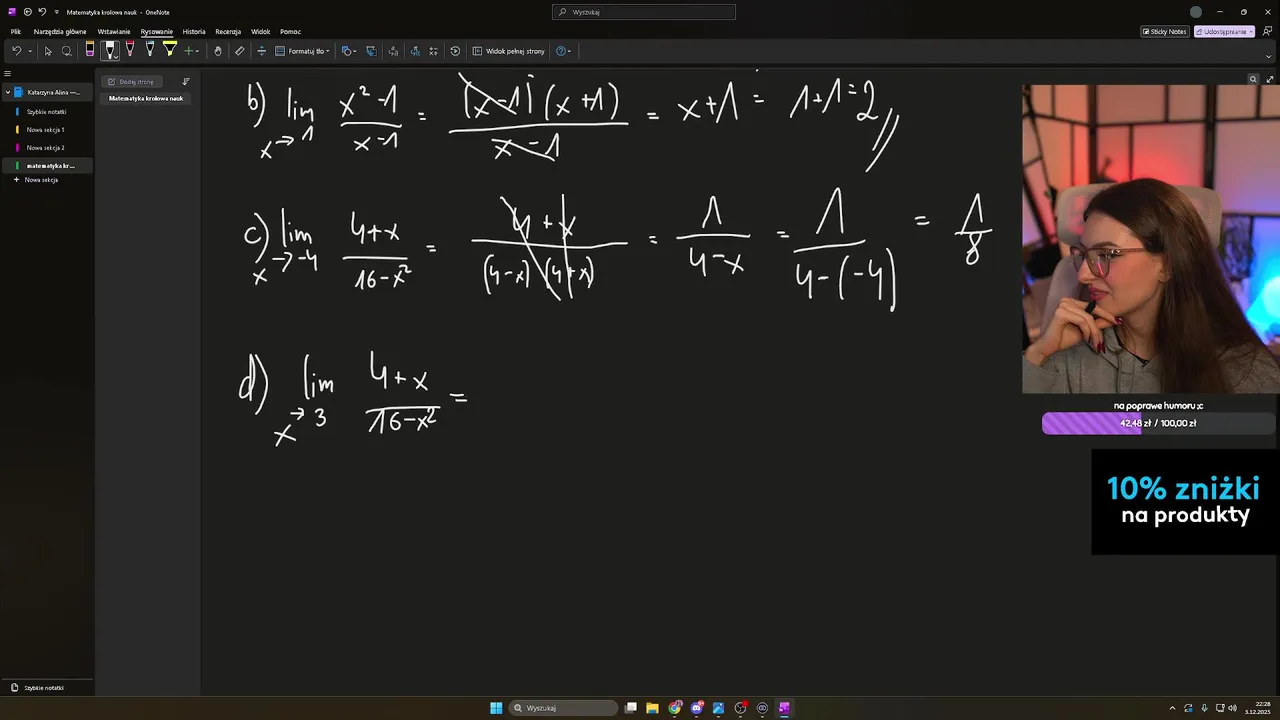 Matematyka królowa nauk - OneNote
Wyszukaj
Plik Narzędzia główne Wstawianie Rysowanie Historia Recenzja Widok Pomoc
Sticky Notes Udostępnianie
Formatuj tło Widok pełnej strony
Katarzyna Alina —...
Szybkie notatki
Nowa sekcja 1
Nowa sekcja 2
matematyka kr...
+ Nowa sekcja
Dodaj stronę
Matematyka królowa nauk
b) lim x→1 x²-1 / x-1 = (x-1)(x+1) / x-1 = x+1 = 1+1=2
c) lim x→-4 4+x / 16-x² = 4+x / (4-x)(4+x) = 1 / 4-x = 1 / 4-(-4) = 1/8
d) lim x→3 4+x / 16-x² =
na poprawe humoru ;c
42,48 zł / 100,00 zł
10% zniżki
na produkty
Szybkie notatki
Wyszukaj
22:28
3.12.2025